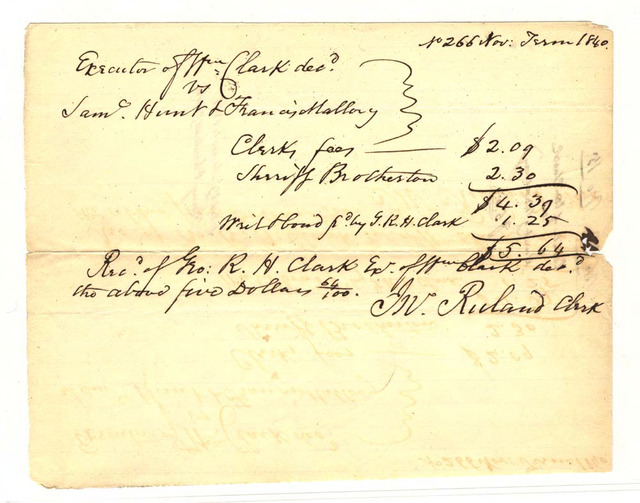 No 266 Nov: Term 1840.
Executor of Wm Clark decd.
vs
Saml. Hunt & Francis Mallory
Clerks fees — $2.09
Sheriff Brotherton 2.30
$4.39
Writ & bond pd by G. R. H. Clark 1.25
$5.64
Recd. of Geo: R. H. Clark Exr. of Wm Clark decd.
the above five Dollars 64/100.
Jno. Ruland Clerk